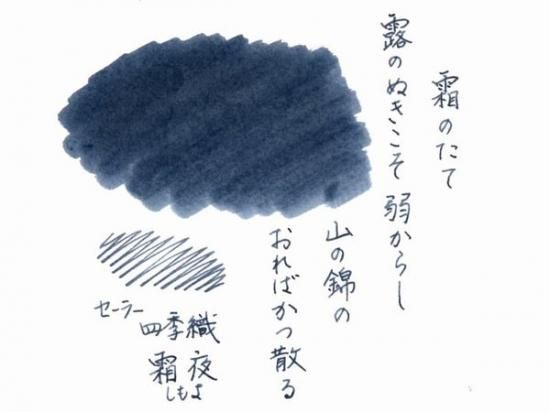 霜のたて
露のぬきこそ弱からし
山の錦の
おればかつ散る
セーラー
四季織
霜夜
しもよ